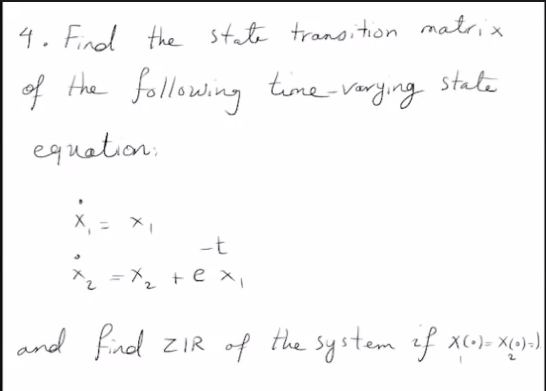 4. Find the state transition matrix
of the following time-varying state
equation:
ẋ₁ = x₁
ẋ₂ = x₂ + e^-t x₁
and find ZIR of the system if x₁(0)= x₂(0)=1